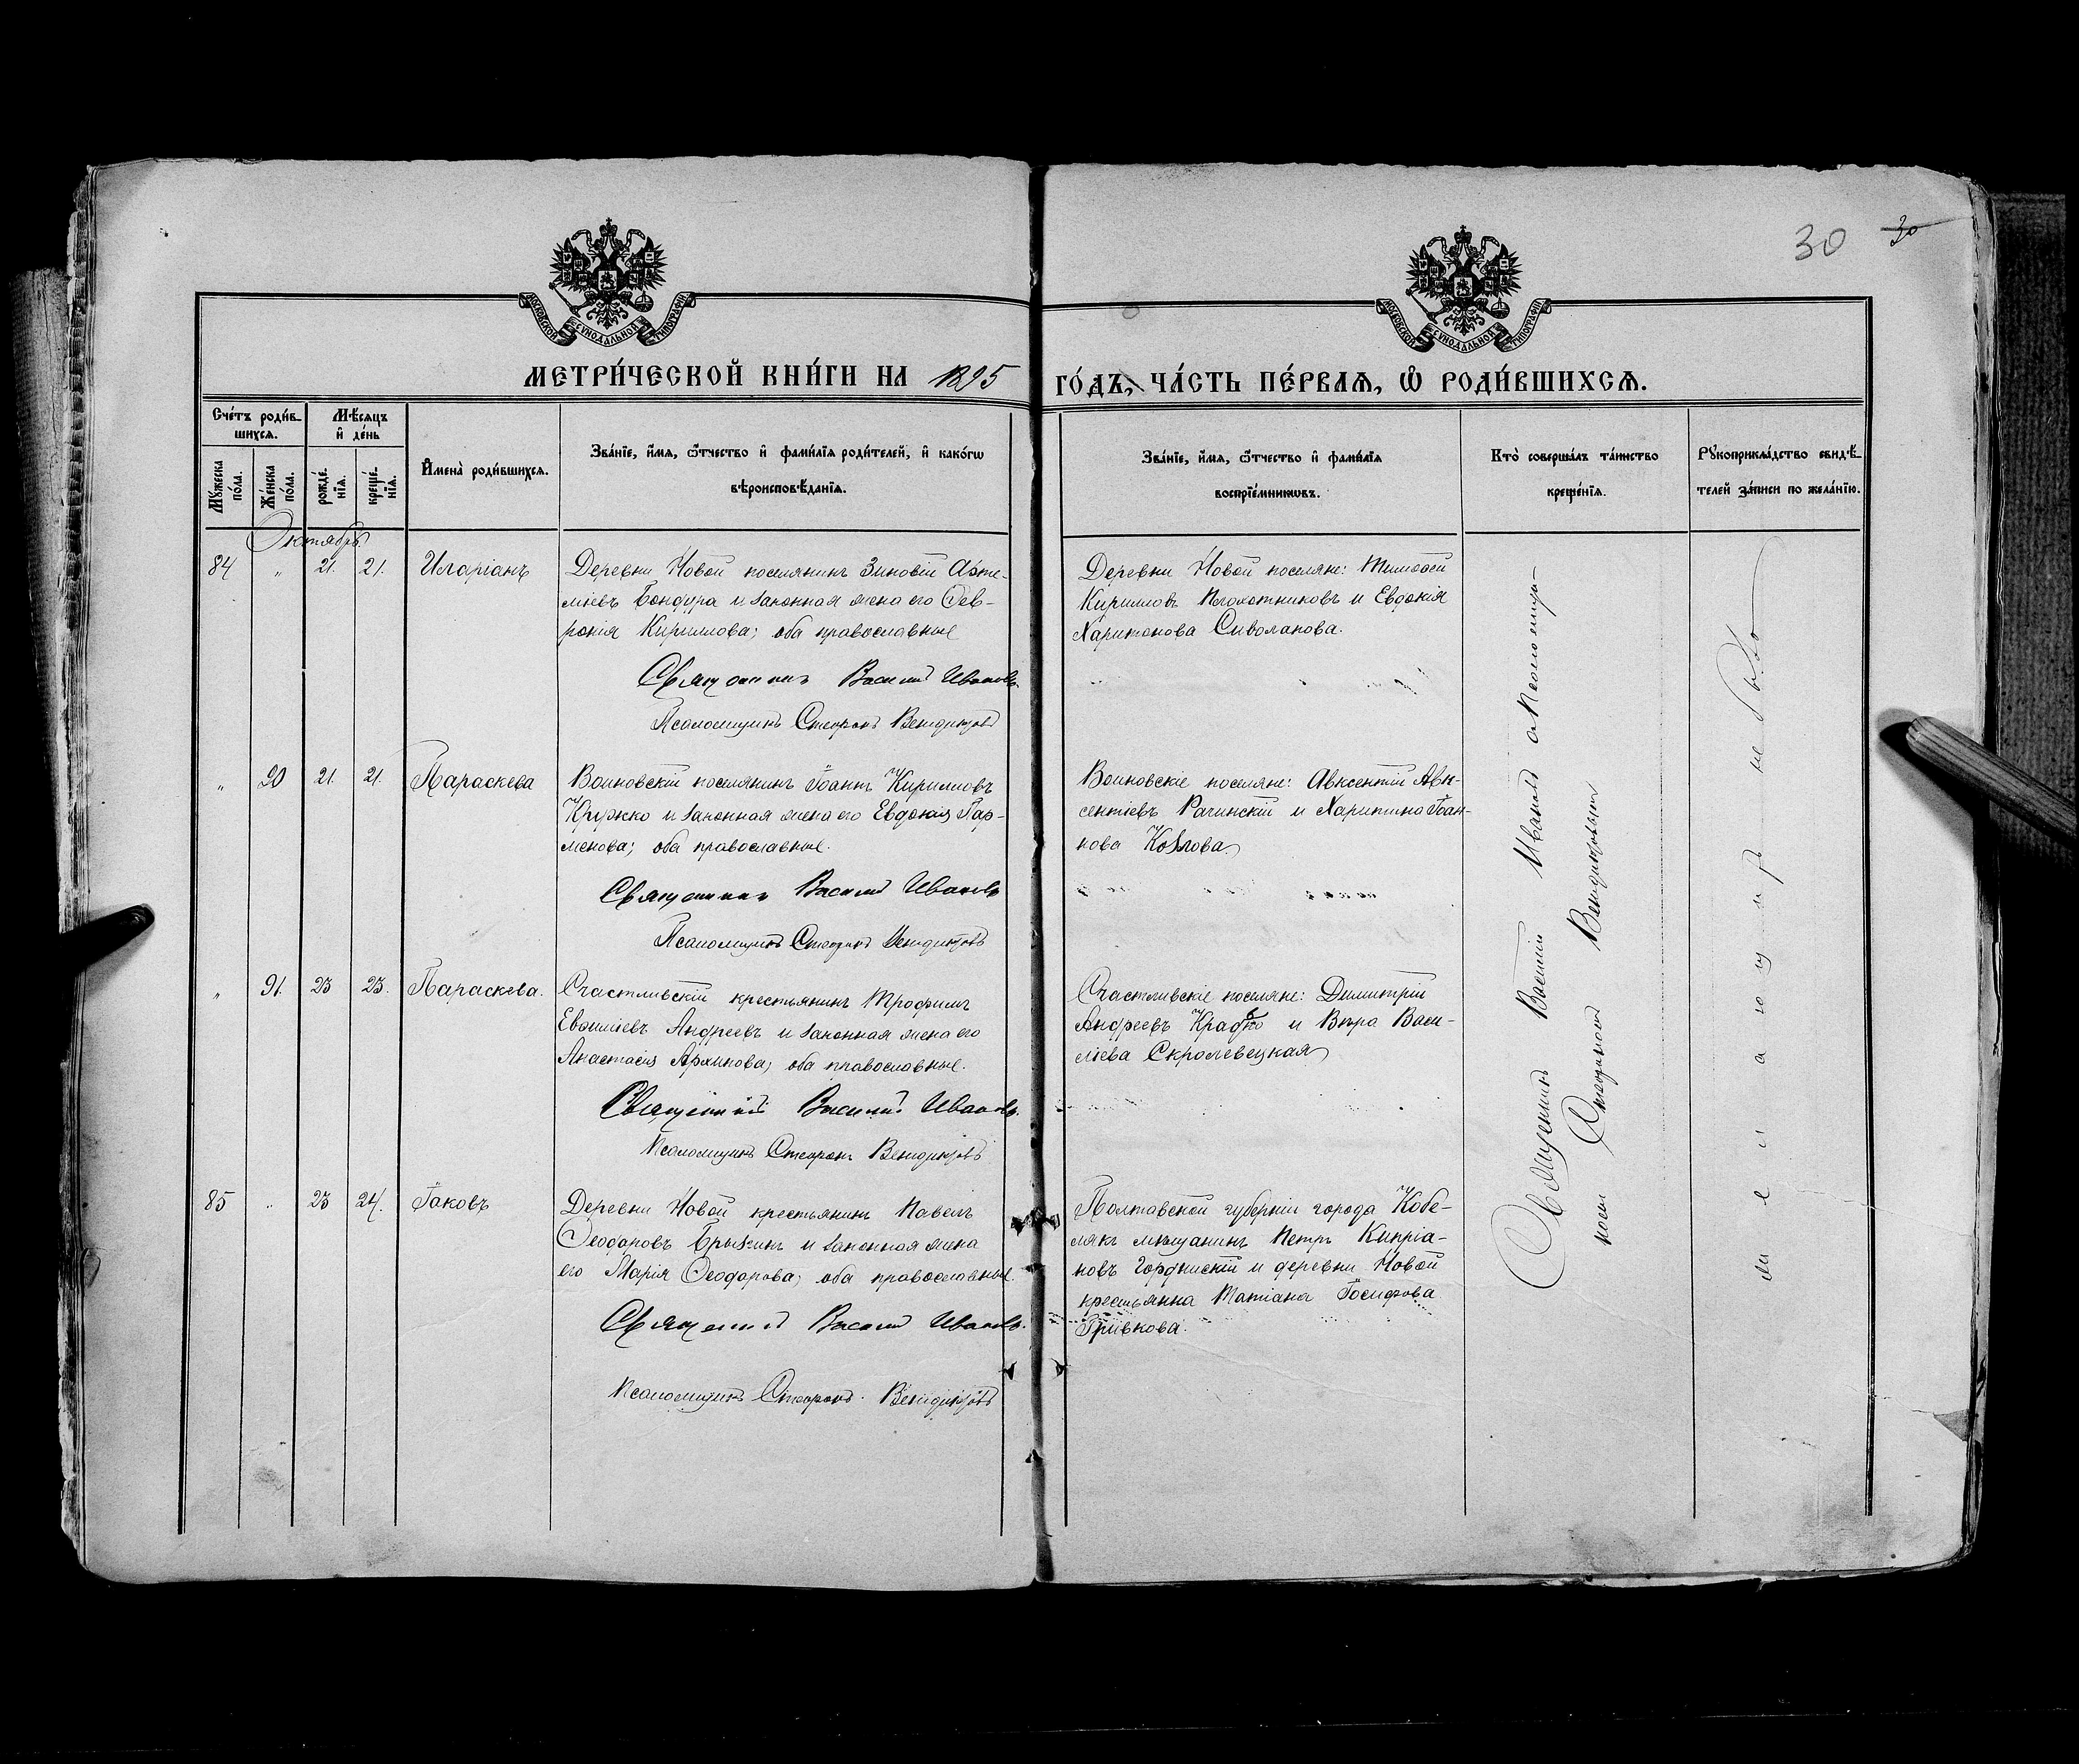 30 30
МОСКОВСКОЙ СУНОДАЛЬНОЙ ТИПОГРАФІИ
МОСКОВСКОЙ СУНОДАЛЬНОЙ ТИПОГРАФІИ
МЕТРИ́ЧЕСКОЙ КНИ́ГИ НА 1895
ГО́ДЪ, ЧА́СТЬ ПЕ́РВАѦ, Ѽ РОДИ́ВШИХСѦ.
Сче́тъ роди́в-
шихсѧ.
Мꙋ́жеска по́ла.
Же́нска по́ла.
Мѣ́сѧцъ
и҆ де́нь
рожде́нїѧ.
креще́нїѧ.
И҆мена̀ роди́вшихсѧ.
Зва́нїе, и҆́мѧ, ѻ҆́тчество и҆ фами́лїѧ роди́телей, и҆ како́гѡ
вѣроисповѣ́данїѧ.
Зва́нїе, и҆́мѧ, ѻ҆́тчество и҆ фами́лїѧ
воспрїе́мникѡвъ.
Кто̀ соверша́лъ та́инство
креще́нїѧ.
Рꙋкоприкла́дство свидѣ́-
телей за́писи по жела́нїю.
Октябрь.
84 " 21. 21. Иларіанъ
Деревни Новой поселянинъ Зиновій Арте-
міевъ Бондура и законная жена его Фев-
ронія Кириллова; оба православные
Священникъ Василій Ивановъ
Псаломщикъ Стефанъ Венидиктовъ
Деревни Новой поселяне: Тимофей
Кирилловъ Плохотниковъ и Евдокія
Харитонова Сиволапова.
" 90 21. 21. Параскева
Воиновскій поселянинъ Іоаннъ Кирилловъ
Кружко и законная жена его Евдокія Пар-
менова; оба православные.
Священникъ Василій Ивановъ
Псаломщикъ Стефанъ Венидиктовъ
Воиновскіе поселяне: Авксентій Авк-
сентіевъ Рачинскій и Харитина Іоан-
нова Козлова
" 91. 23 23. Параскева.
Счастливскій крестьянинъ Трофимъ
Евфиміевъ Андреевъ и законная жена его
Анастасія Архипова; оба православные.
Священникъ Василій Ивановъ
Псаломщикъ Стефанъ Венидиктовъ
Счастливскіе поселяне: Димитрій
Андреевъ и Вѣра Васи-
ліева Скролевецкая
85 " 23 24. Іаковъ
Деревни Новой крестьянинъ Павелъ
Ѳеодоровъ Брызинъ и законная жена
его Марія Ѳеодорова; оба православные.
Священникъ Василій Ивановъ
Псаломщикъ Стефанъ Венидиктовъ
Полтавской губерніи города Кобе-
лякъ мѣщанинъ Петръ Кипріа-
новъ и деревни Новой
крестьянка Татіана Іосифова
Гривкова.
Священникъ Василій Ивановъ с Псаломщи-
комъ Стефаномъ Венидиктовымъ
желающихъ не было